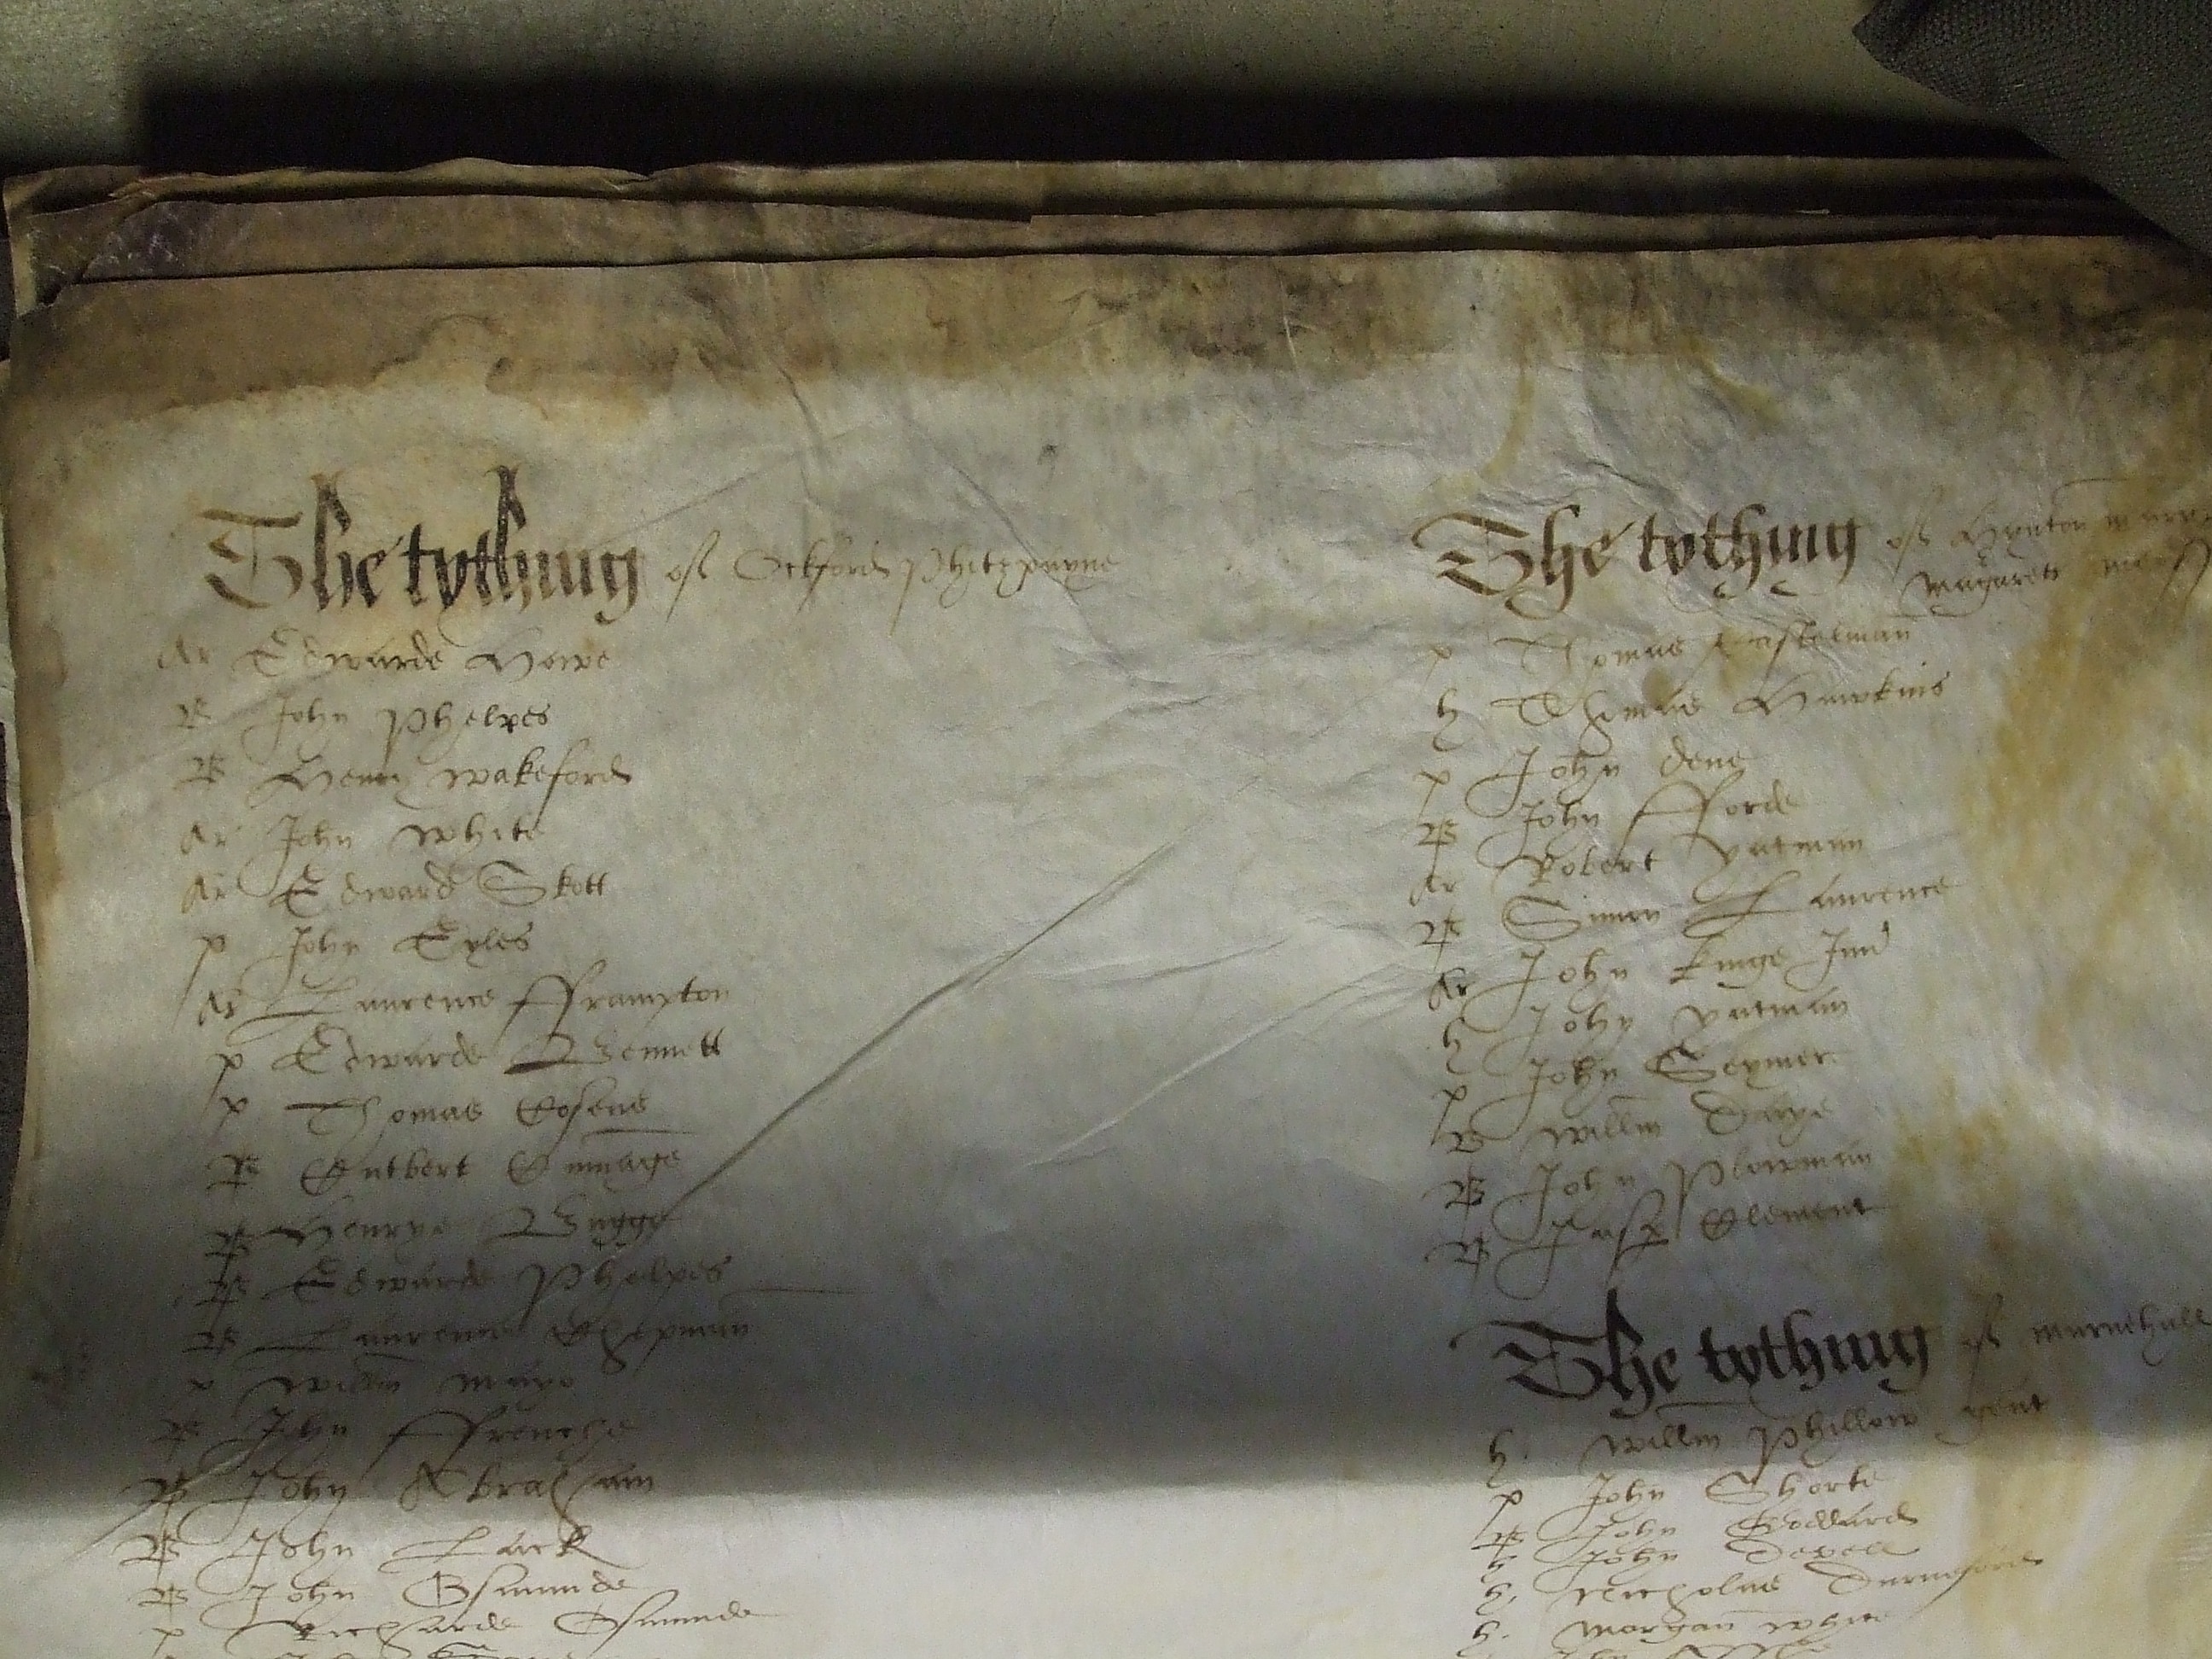 The tythyng off Ockford Phitzpayne
Ar Edwarde Howe
B John Phelpes
B Henry Wakeford
Ar John White
Ar Edward Skott
p John Eyles
Ar Laurence Fframpton
p Edwarde Bennett
p Thomas Cosens
B Cutbert Gūmage
B Henrye Bugge
B Edwarde Phelpes
B Laurence Chepman
p Willm Mayo
B John Ffrenche
B John Abraham
B John Lack
B John Osmunde
p Richarde Osmunde
The tythyng off Hynton
Magarett
p Thomas
h Thomas Hawkins
p John Dene
B John Fforde
Ar Robert Yatman
B Simon Laurence
Ar John Kinge Jun
h John Yatman
p John Seymer
B Willm Daye
B John Plowman
B Clement
The tythyng off Marnehull
h Willm Phillow gent
p John Shorte
B John Goddard
h John
h Nicholas Durneford
h Morgan White